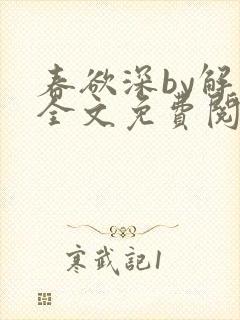 春欲深by解
全文免費閱
寒武記1